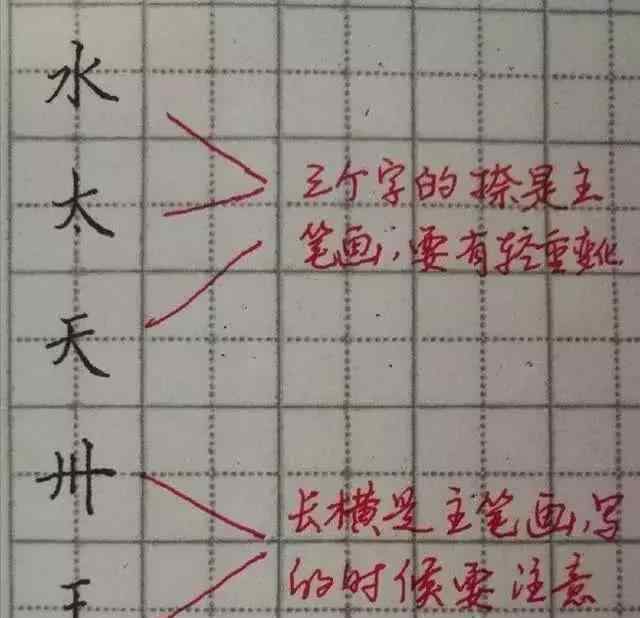 水
太
天
卅
三个字的捺是主
笔画,要有轻重变化
长横是主笔画,写
的时候要注意